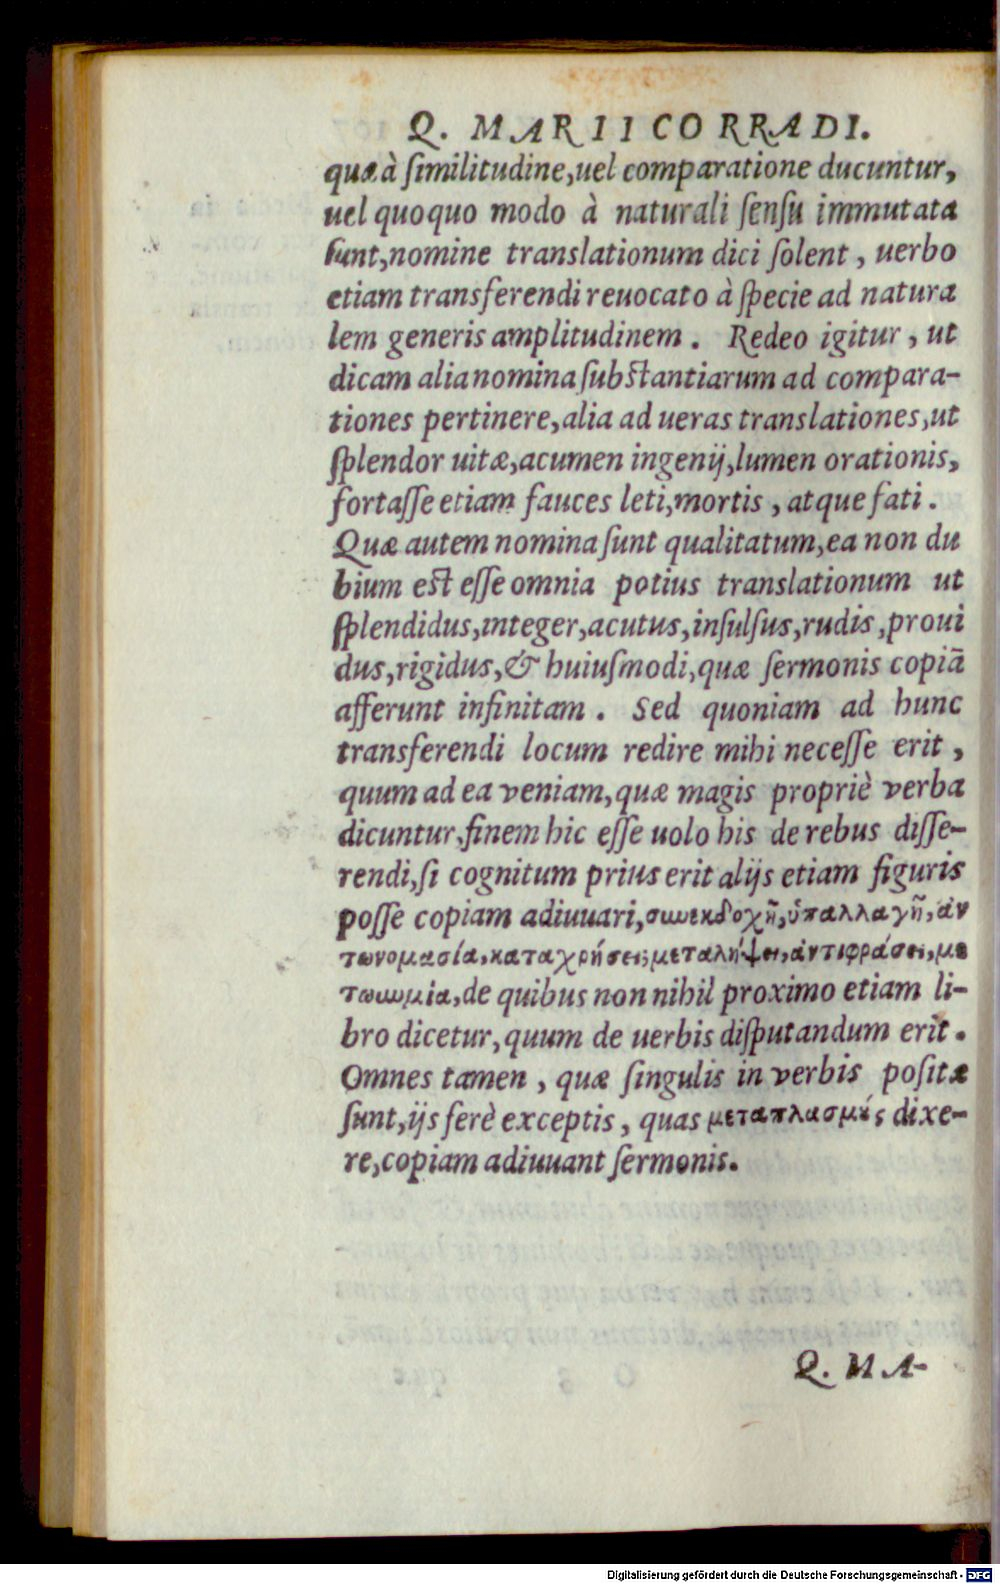 Q. MARII CORRADI.
quæ à similitudine, uel comparatione ducuntur,
uel quoquo modo à naturali sensu immutata
sunt, nomine translationum dici solent, uerbo
etiam transferendi reuocato à specie ad natura
lem generis amplitudinem. Redeo igitur, ut
dicam alia nomina substantiarum ad compara-
tiones pertinere, alia ad ueras translationes, ut
splendor uitæ, acumen ingenij, lumen orationis,
fortasse etiam fauces leti, mortis, atque fati.
Quæ autem nomina sunt qualitatum, ea non du
bium est esse omnia potius translationum ut
splendidus, integer, acutus, insulsus, rudis, proui
dus, rigidus, & huiusmodi, quæ sermonis copiā
afferunt infinitam. Sed quoniam ad hunc
transferendi locum redire mihi necesse erit,
quum ad ea veniam, quæ magis propriè verba
dicuntur, finem hic esse uolo his de rebus disse-
rendi, si cognitum prius erit alijs etiam figuris
posse copiam adiuuari, συνεκδοχῇ, ὑπαλλαγῇ, ἀν
τωνομασίᾳ, καταχρήσει, μεταλήψει, ἀντιφράσει, με
τωνυμίᾳ, de quibus non nihil proximo etiam li-
bro dicetur, quum de uerbis disputandum erit.
Omnes tamen, quæ singulis in verbis positæ
sunt, ijs ferè exceptis, quas μεταπλασμοὺς dixe-
re, copiam adiuuant sermonis.
Q. MA-
Digitalisierung gefördert durch die Deutsche Forschungsgemeinschaft - DFG